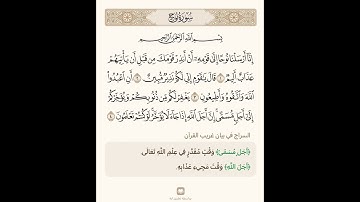 سورة نوح
بسم الله الرحمن الرحيم
إِنَّا أَرْسَلْنَا نُوحًا إِلَىٰ قَوْمِهِ أَنْ أَنذِرْ قَوْمَكَ مِن قَبْلِ أَن يَأْتِيَهُمْ
عَذَابٌ أَلِيمٌ ١ قَالَ يَا قَوْمِ إِنِّي لَكُمْ نَذِيرٌ مُّبِينٌ ٢ أَنِ اعْبُدُوا
اللَّهَ وَاتَّقُوهُ وَأَطِيعُونِ ٣ يَغْفِرْ لَكُم مِّن ذُنُوبِكُمْ وَيُؤَخِّرْكُمْ
إِلَىٰ أَجَلٍ مُّسَمًّى إِنَّ أَجَلَ اللَّهِ إِذَا جَاءَ لَا يُؤَخَّرُ لَوْ كُنتُمْ تَعْلَمُونَ ٤
السراج في بيان غريب القرآن
﴿أَجَلٍ مُّسَمًّى﴾ وَقْتٍ مُقَدَّرٍ فِي عِلْمِ اللهِ تَعَالَى.
﴿أَجَلَ اللَّهِ﴾ وَقْتَ مَجِيءِ عَذَابِهِ.